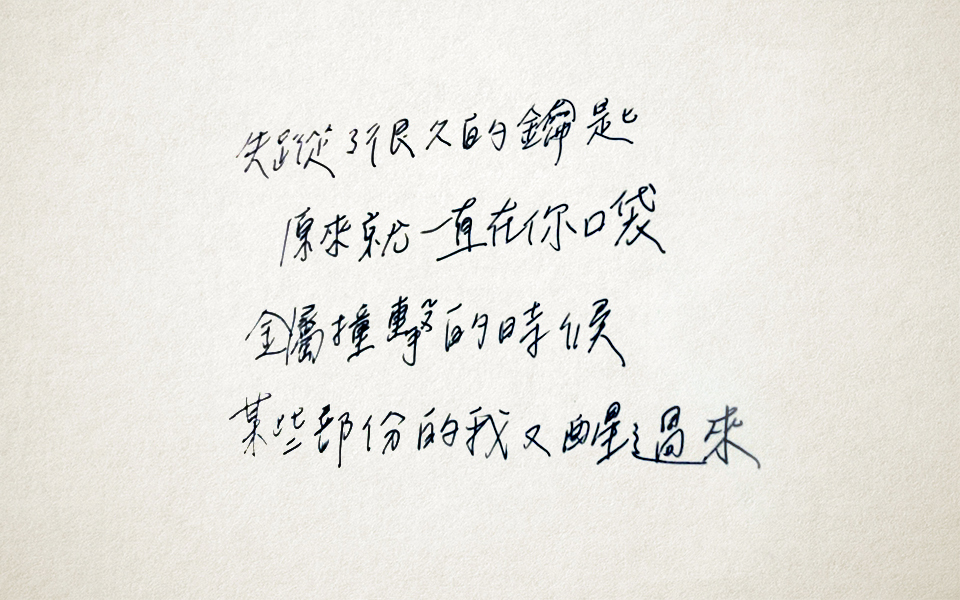 失蹤了很久的鑰匙
原來就一直在你口袋
金屬撞擊的時候
某些部份的我又醒過來